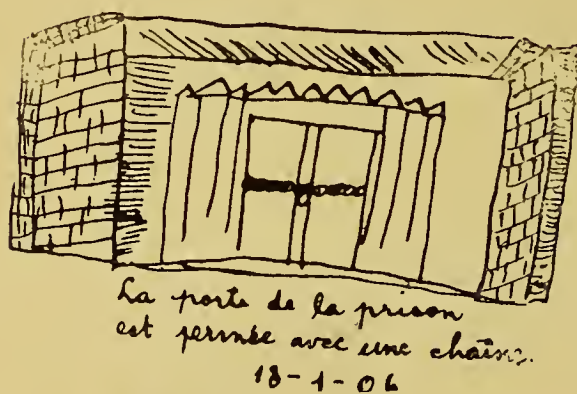 La porte de la prison
est fermée avec une chaîne.
18-1-06